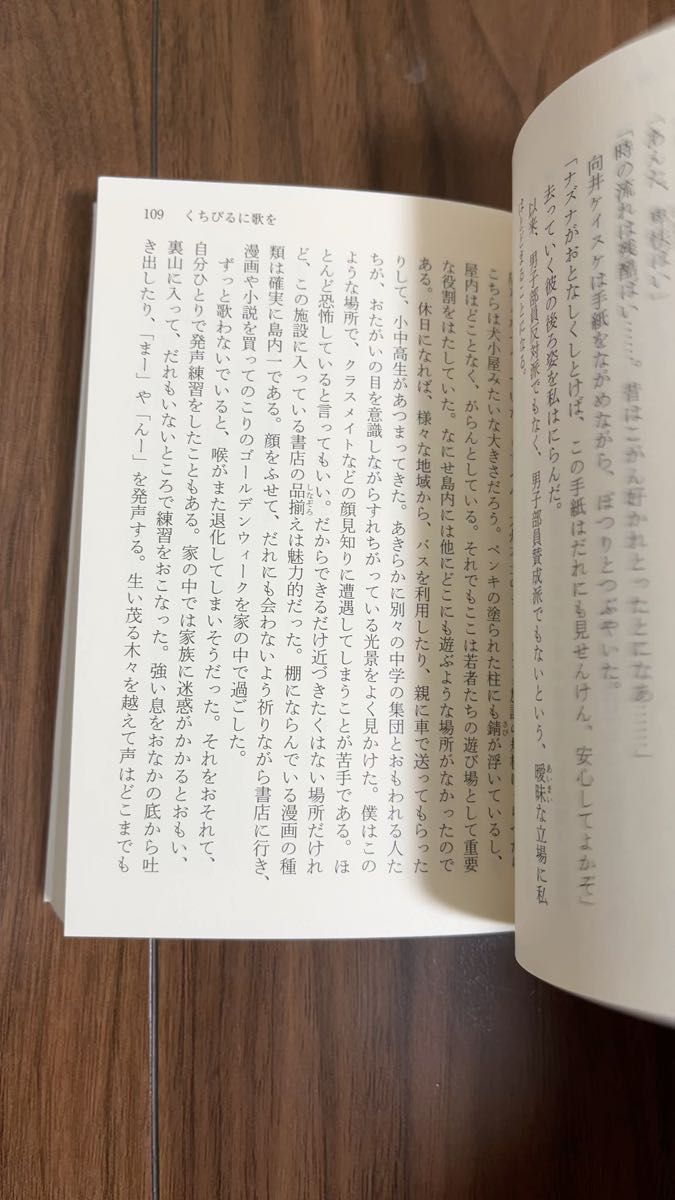 「時の流れは残酷ばい……。昔はこがん好かれとったとになあ……」
向井ケイスケは手紙をながめながら、ぽつりとつぶやいた。
「ナズナがおとなしくしとけば、この手紙はだれにも見せんけん、安心してよかぞ」
去っていく彼の後ろ姿を私はにらんだ。
以来、男子部員反対派でもなく、男子部員賛成派でもないという、曖昧な立場に私
109 くちびるに歌を
こちらは犬小屋みたいな大きさだろう。ペンキの塗られた柱にも錆が浮いているし、
屋内はどことなく、がらんとしている。それでもここは若者たちの遊び場として重要
な役割をはたしていた。なにせ島内には他にどこにも遊ぶような場所がなかったので
ある。休日になれば、様々な地域から、バスを利用したり、親に車で送ってもらった
りして、小中高生があつまってきた。あきらかに別々の中学の集団とおもわれる人た
ちが、おたがいの目を意識しながらすれちがっている光景をよく見かけた。僕はこの
ような場所で、クラスメイトなどの顔見知りに遭遇してしまうことが苦手である。ほ
とんど恐怖していると言ってもいい。だからできるだけ近づきたくはない場所だけれ
ど、この施設に入っている書店の品揃えは魅力的だった。棚にならんでいる漫画の種
類は確実に島内一である。顔をふせて、だれにも会わないよう祈りながら書店に行き、
漫画や小説を買ってのこりのゴールデンウィークを家の中で過ごした。
ずっと歌わないでいると、喉がまた退化してしまいそうだった。それをおそれて、
自分ひとりで発声練習をしたこともある。家の中では家族に迷惑がかかるとおもい、
裏山に入って、だれもいないところで練習をおこなった。強い息をおなかの底から吐
き出したり、「まー」や「んー」を発声する。生い茂る木々を越えて声はどこまでも